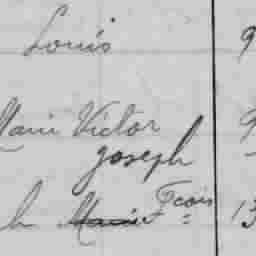 Louis 9
Marie Victor 9
Joseph
h Marie Fcois 13